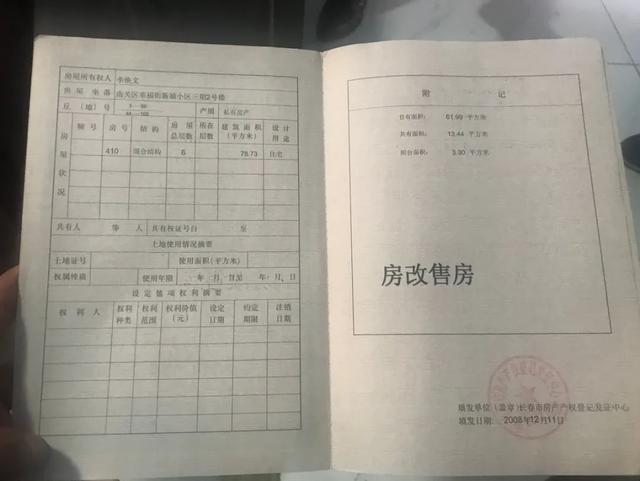 房屋所有权人 李焕文
房屋坐落 南关区幸福街新城小区三期2号楼
丘（地）号 产别 私有房产
房屋状况
幢号 房号 结构 房屋总层数 所在层数 建筑面积（平方米） 设计用途
410 混合结构 6 78.73 住宅
共有人 等 人 共有权证号自 至
土地使用情况摘要
土地证号 使用面积（平方米）
权属性质 使用年限 年 月 日至 年 月 日
设定他项权利摘要
权利人 权利种类 权利范围 权利价值（元） 设定日期 约定期限 注销日期
附 记
自有面积： 61.99 平方米
共有面积： 13.44 平方米
阳台面积： 3.30 平方米
房改售房
填发单位（盖章）长春市房产产权登记发证中心
填发日期： 2008年12月11日